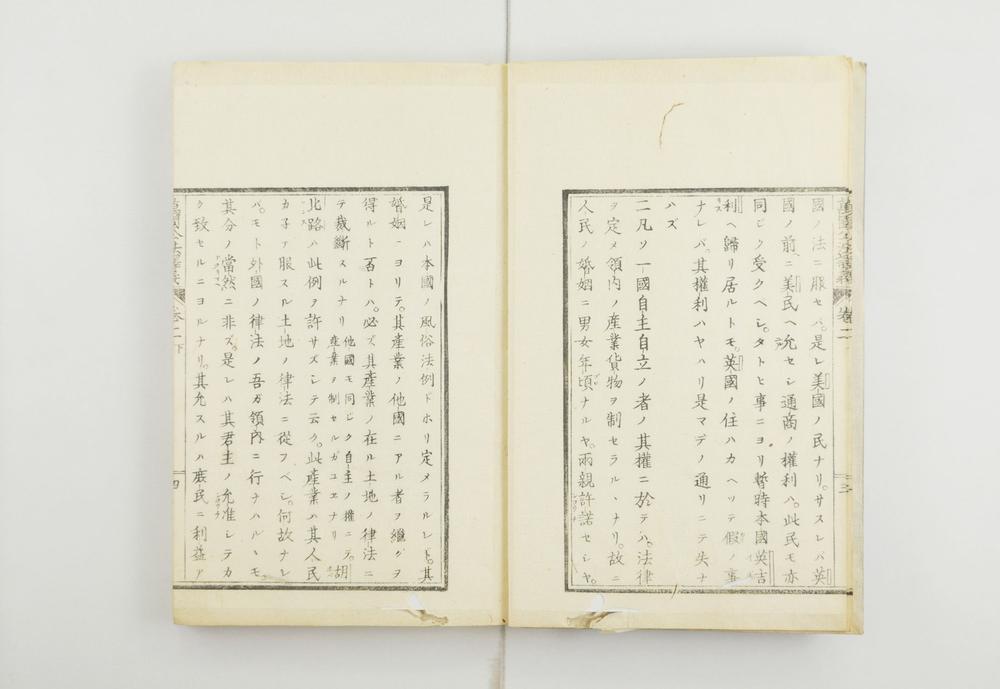 國ノ法ニ服セバ。是レ美國ノ民ナリ。サスレバ英
國ノ前ニ美民ヘ允セシ通商ノ權利ハ。此民モ亦
同ジク受クヘシ。タトヒ事ニヨリ暫時本國英吉
利ヘ歸リ居ルトモ。英國ノ住ハカヘッテ假ノ事
ナレバ。其權利ハヤハリ是マデノ通リニテ失ナ
ハズ
二凡ソ一國自主自立ノ者ノ其權ニ於テハ。法律
ヲ定メ領内ノ産業貨物ヲ制セラルヽナリ。故ニ
人民ノ婚姻ニ男女年頃ナルヤ。兩親許諾セシヤ。
卷二
三
是レハ本國ノ風俗法例ドホリ定メラルレド。其
婚姻ニヨリテ。其産業ノ他國ニアル者ヲ繼グヲ
得ルト否トハ。必ズ其産業ノ在ル土地ノ律法ニ
テ裁斷スルナリ 他國モ同じク自主ノ權ニテ。
産業ヲ制セルガユヱナリ 胡
北路ハ此例ヲ許サズシテ云ク。此産業ハ其人民
カ子ァ服スル土地ノ律法ニ從フベシ。何故ナレ
バ。モト外國ノ律法ノ吾ガ領內ニ行ナハルヽモ。
其分ノ當然ニ非ズ。是レハ其君主ノ允准シテカ
ク致セルニヨルナリ。其允スルハ庶民ニ利益ァ
卷二下
四